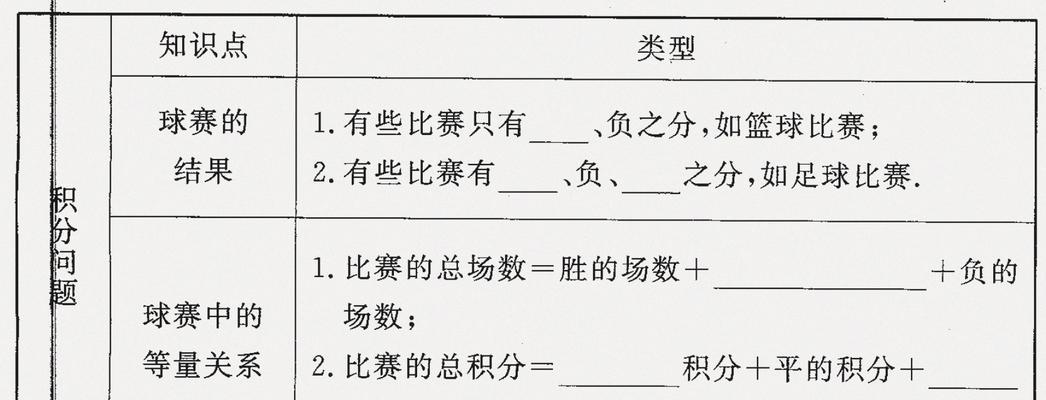 知识点
类型
积分问题
球赛的
结果
1. 有些比赛只有____、负之分,如篮球比赛;
2. 有些比赛有____、负、____之分,如足球比赛.
球赛中的
等量关系
1. 比赛的总场数=胜的场数+______________+负的
场数;
2. 比赛的总积分=________积分+平的积分+______